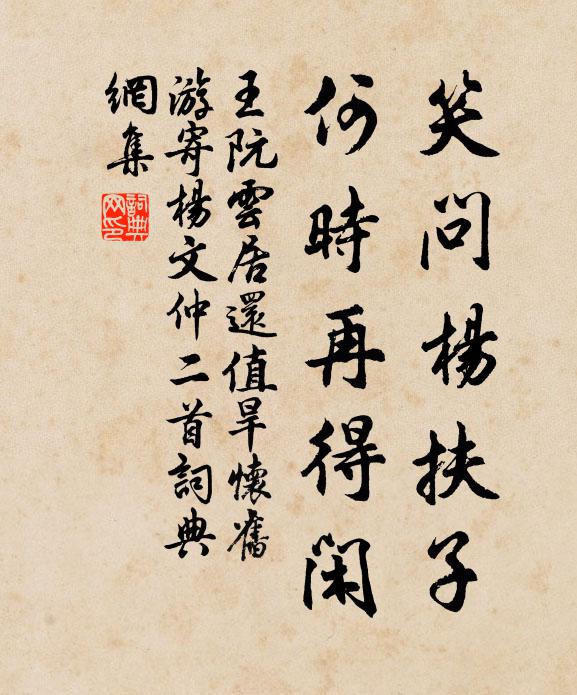 笑問楊扶子
何時再得閑
王阮雲居還值旱懷舊
游寄楊文仲二首詞典
網集
詞典
网印